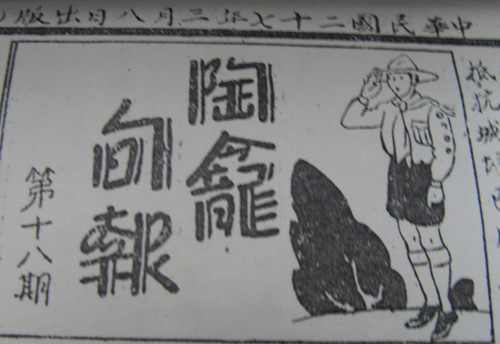 中華民國二十七年三月八日出版
抵抗城
陶龕
旬報
第十八期